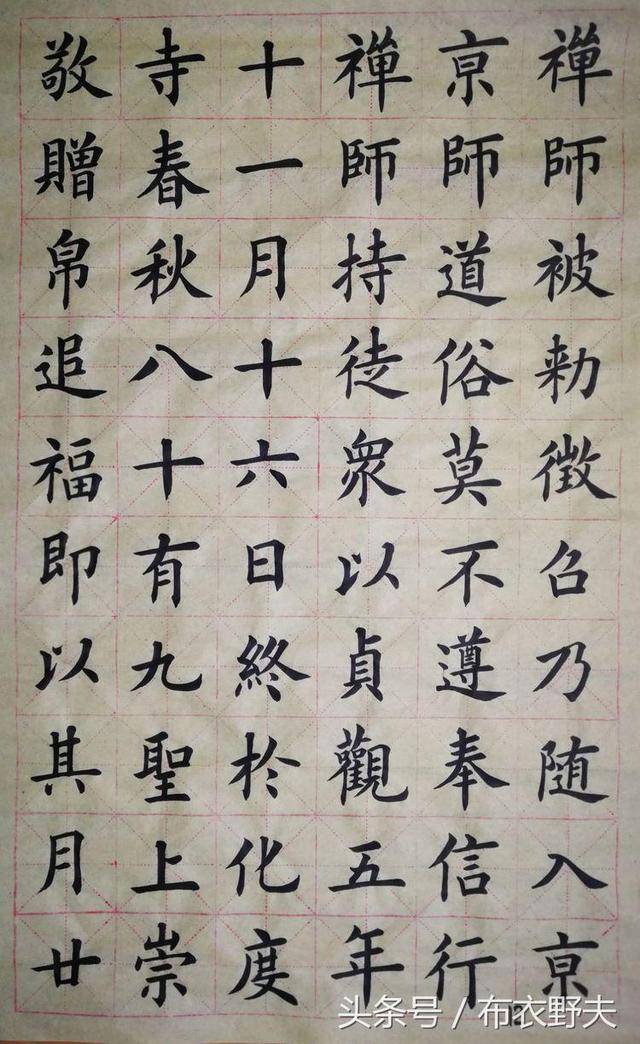 禪師被勑徵召乃随入京
京師道俗莫不遵奉信行
禪師持徒衆以貞觀五年
十一月十六日終於化度
寺春秋八十有九聖上崇
敬贈帛追福即以其月廿
头条号 / 布衣野夫